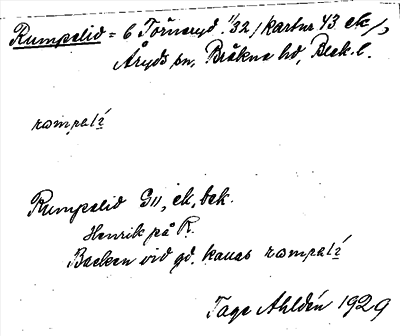 Rumpelid = 6 Törneryd 1/32 / kartur 43 ek /,
Åryds sn, Bräkne hd, Blek. l.
rompalì
Rumpelid Gård, ek, bek.
Henrik på R.
Backen vid gd. kallas rompalì
Tage Ahldén 1929